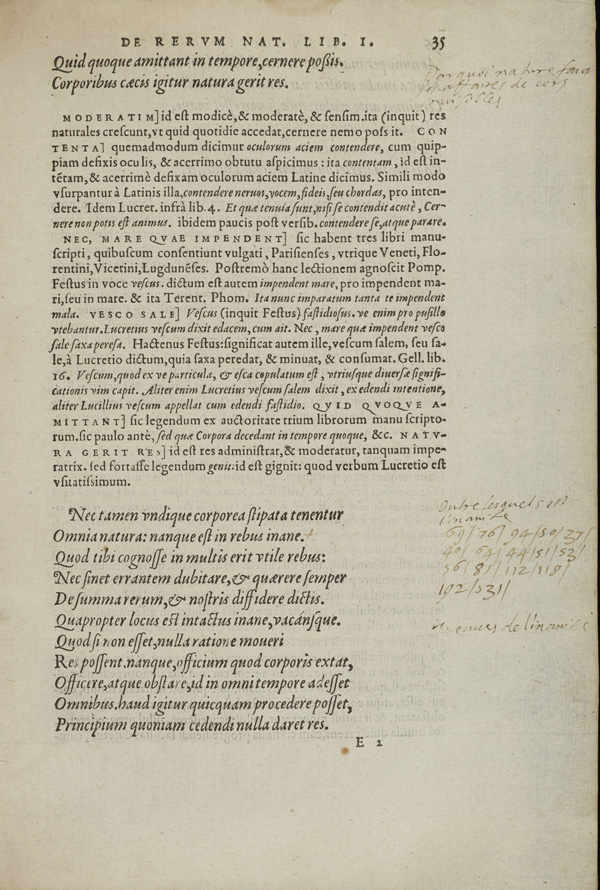 DE RERVM NAT. LIB. I. 35
Quid quoque amittant in tempore, cernere poſſis.
Corporibus cæcis igitur natura gerit res.
MODERATIM] id eſt modicè, & moderatè, & ſenſim. ita (inquit) res
naturales creſcunt, vt quid quotidie accedat, cernere nemo poſs it. CON
TENTA] quemadmodum dicimur oculorum aciem contendere, cum quip-
piam defixis oculis, & acerrimo obtutu aſpicimus: ita contentam, id eſt in-
tētam, & acerrimè defixam oculorum aciem Latine dicimus. Simili modo
vſurpantur à Latinis illa, contendere neruos, vocem, fideis, ſeu chordas, pro inten-
dere. Idem Lucret. infrà lib. 4. Et quæ tenuia ſunt, niſi ſe contendit acutè, Cer-
nere non potis eſt animus. ibidem paucis poſt verſib. contendere ſe, atque parare.
NEC, MARE QVAE IMPENDENT] ſic habent tres libri manu-
ſcripti, quibuſcum conſentiunt vulgati, Pariſienſes, vtrique Veneti, Flo-
rentini, Vicetini, Lugdunēſes. Poſtremò hanc lectionem agnoſcit Pomp.
Feſtus in voce veſcus. dictum eſt autem impendent mare, pro impendent ma-
ri, ſeu in mare. & ita Terent. Phom. Ita nunc imparatum tanta te impendent
mala. VESCO SALE] Veſcus (inquit Feſtus) faſtidioſus. ve enim pro puſillo
vtebantur. Lucretius veſcum dixit edacem, cum ait. Nec, mare quæ impendent veſco
ſale ſaxa pereſa. Hactenus Feſtus: ſignificat autem ille, veſcum ſalem, ſeu ſa-
le, à Lucretio dictum, quia ſaxa peredat, & minuat, & conſumat. Gell. lib.
16. Veſcum, quod ex ve particula, & eſca copulatum eſt, vtriuſque diuerſæ ſignifi-
cationis vim capit. Aliter enim Lucretius veſcum ſalem dixit, ex edendi intentione,
aliter Lucillius veſcum appellat cum edendi faſtidio. QVID QVOQVE A-
MITTANT] ſic legendum ex auctoritate trium librorum manu ſcripto-
rum. ſic paulo antè, ſed quæ Corpora decedant in tempore quoque, &c. NATV-
RA GERIT RES] id eſt res adminiſtrat, & moderatur, tanquam impe-
ratrix. ſed fortaſſe legendum genit: id eſt gignit: quod verbum Lucretio eſt
vſitatiſſimum.
Nec tamen vndique corporea ſtipata tenentur
Omnia natura: nanque eſt in rebus inane.
Quod tibi cognoſſe in multis erit vtile rebus:
Nec ſinet errantem dubitare, & quærere ſemper
De ſumma rerum, & noſtris diffidere dictis.
Quapropter locus eſt intactus inane, vacánſque.
Quod ſi non eſſet, nulla ratione moueri
Res poſſent. nanque, officium quod corporis extat,
Officere, atque obſtare, id in omni tempore adeſſet
Omnibus. haud igitur quicquam procedere poſſet,
Principium quoniam cedendi nulla daret res.
E 2
Pourquoi nature
69/76/94/50/37/
44/51/53/
56/85/112/118/
192/131/
de linanité